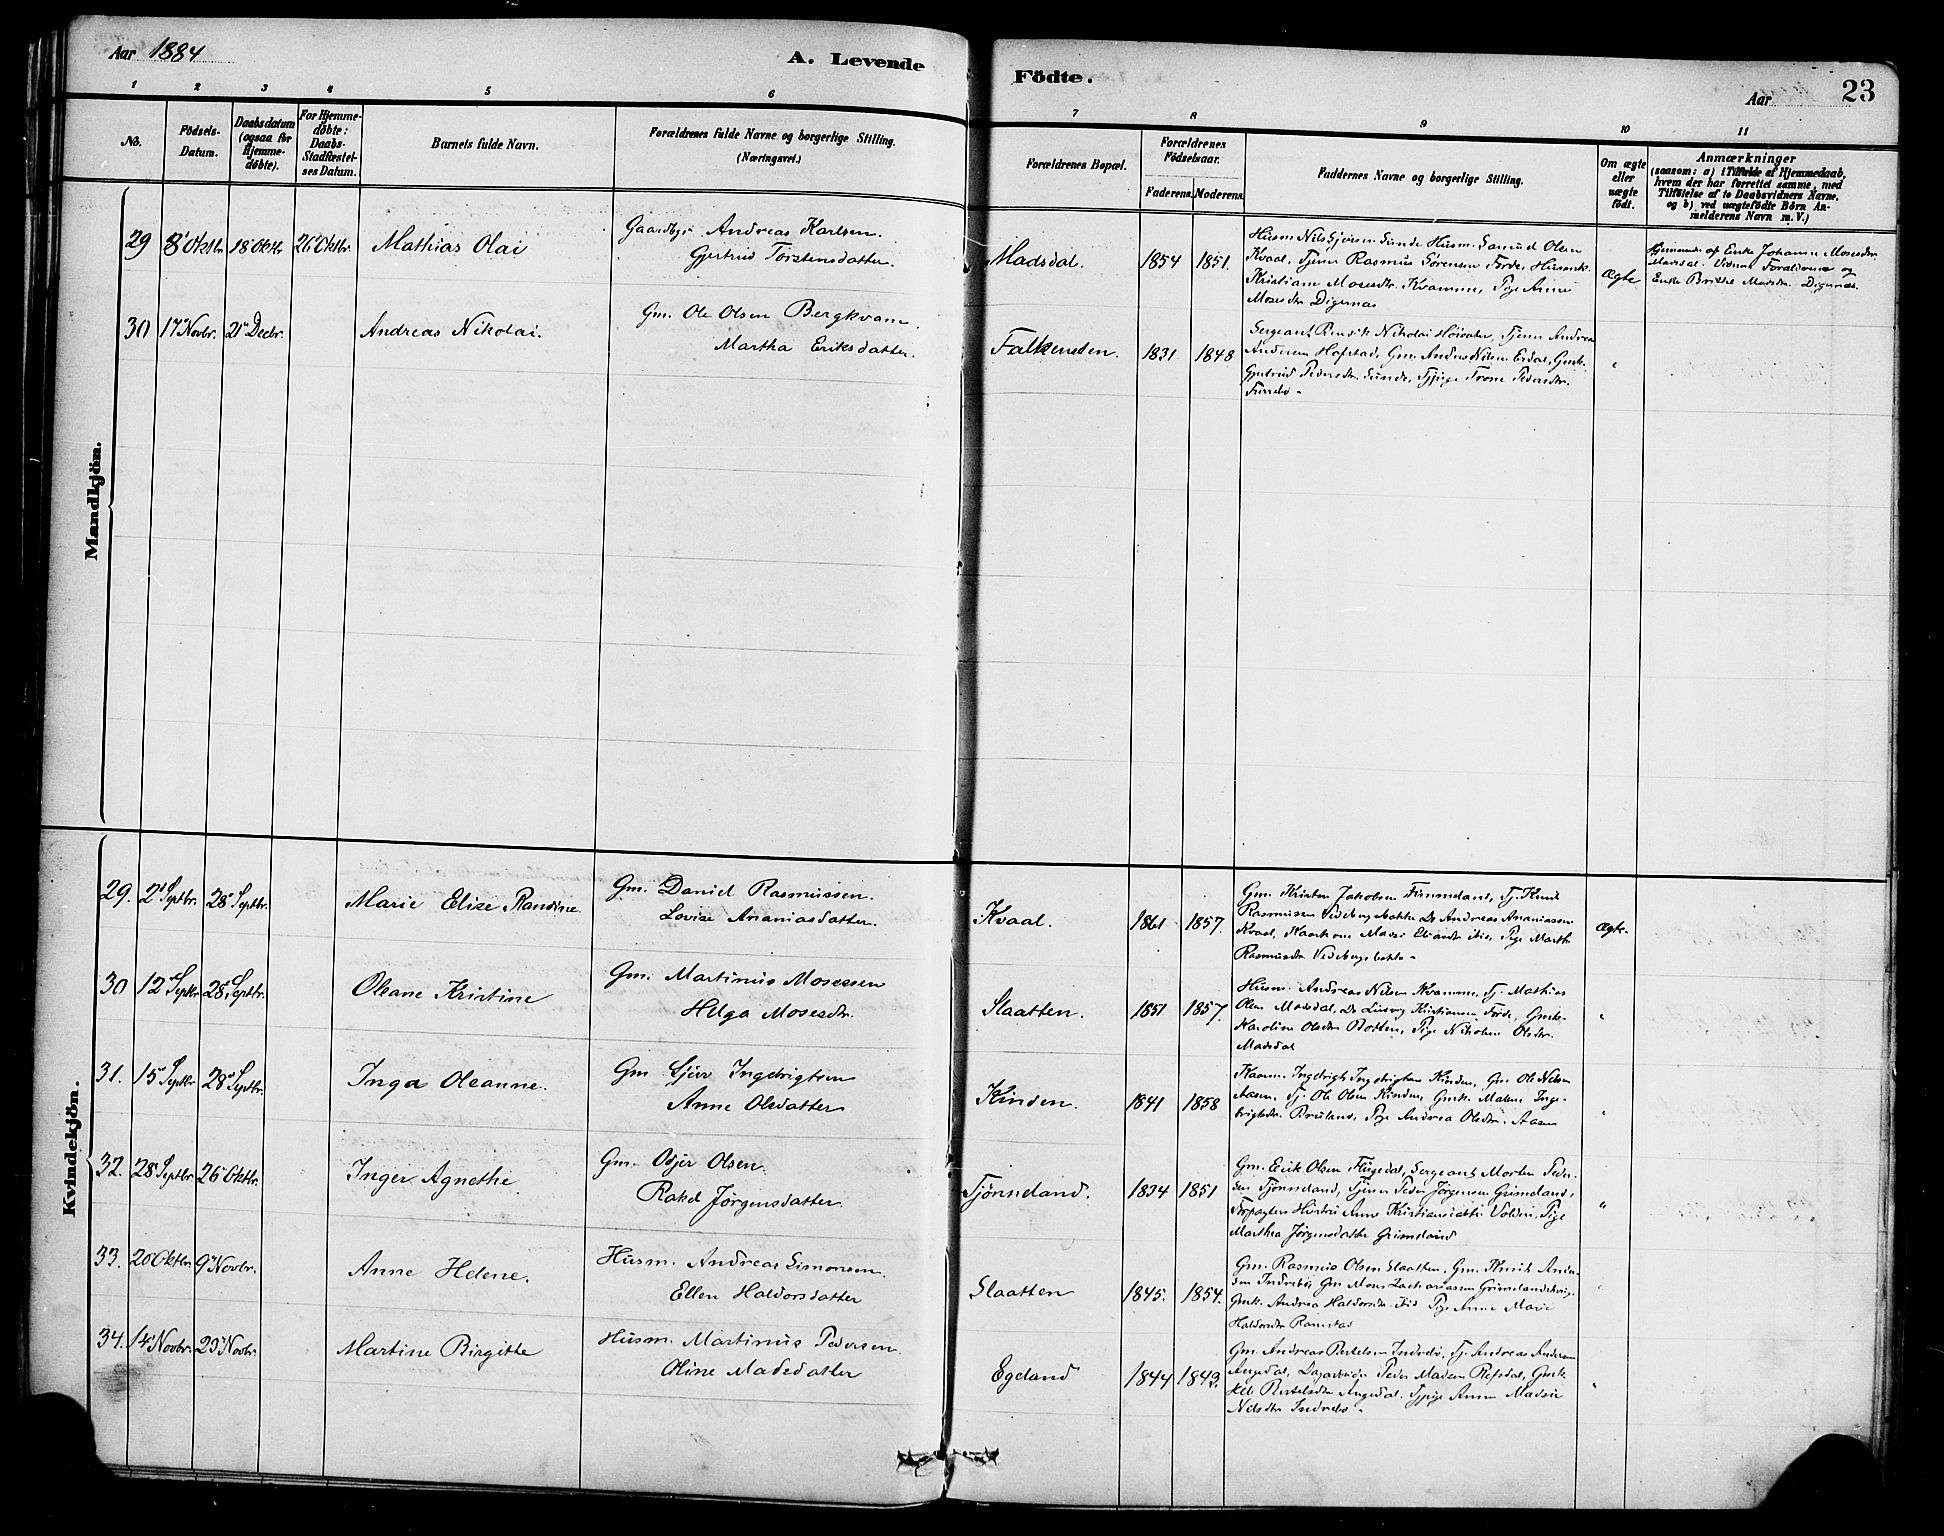 Aar 1884
A. Levende
Födte.
Aar
23
1 2 3 4 5 6 7 8 9 10 11
No.
Födsels-
Datum.
Daabsdatum
(ogsaa for
Hjemme-
döbte).
For Hjemme-
döbte:
Daabs-
Stadfæstel-
ses Datum.
Barnets fulde Navn.
Forældrenes fulde Navne og borgerlige Stilling.
(Næringsvei.)
Forældrenes Bopæl.
Forældrenes
Födselsaar.
Faderens. Moderens.
Faddernes Navne og borgerlige Stilling.
Om ægte
eller
uægte
födt.
Anmærkninger
(saasom: a) i Tilfælde af Hjemmedaab,
hvem der har forrettet samme, med
Tilföielse af to Daabsvidners Navne,
og b) ved uægtefödte Börn An-
melderens Navn m. V.)
Mandkjön.
29 8 Oktbr 18 Oktbr 26 Oktbr. Mathias Olai
Andreas Karlsen.
Gjertrud Torstensdatter.
Madsdal. 1854 1851.
Husm. Nils Sjursen Sunde Husm. Samuel Olsen
Kvaal, Tjener Rasmus Sørensen Førde,
Kristiane Mosesdtr. Kvamme, Pige Anne
Mosesdtr Digernæs
Ægte
af Enke Johanne Mosesdtr
Madsdal. Vidner Forældrene og
Enke Brithe Madsdtr. Digernæs.
30 17 Novbr. 21 Decbr. Andreas Nikolai.
Gm. Ole Olsen Bergkvam.
Martha Eriksdatter.
1831 1848
Sergeant Nikolai Tjener Andreas
Andersen Hofstad, Gm Anders Nilsen Gmk.
Gjertrud Pedersdtr. Sunde, Pedersdtr.
Kvindekjön.
29. 2 Septbr. 28 Septbr. Marie Elise Randine
Gm. Daniel Rasmussen.
Lovise Ananiasdatter.
Kvaal. 1861 1857.
Gm. Kristen Jakobsen Tj. Knut
Rasmussen Andreas Ananiassen
Kvaal, Pige Marth
Rasmusdtr
Ægte.
30 12 Septbr 28 Septbr. Oleane Kristine
Gm. Martinus Mosessen
Helga Mosesdtr.
Slaatten. 1851 1857.
Husm. Andreas Nilsen Kvamme, Tj. Mathias
Olsen Madsdal, Do Ludvig Kristiansen Førde, Gmk.
Karoline Olsdtr Botten, Pige Nikoline Olsdtr.
Madsdal
31. 15 Septbr 28 Septbr. Inga Oleanne.
Gm Sjur Ingebrigtsen
Anne Olsdatter
Kinden. 1841 1858
Ingebrigt Ingebrigtsen Kinden, Gm. Ole Nilsen
Aasen, Tj. Ole Olsen Kinden, Gmk. Malene Inge-
brigtsdtr. Bruland, Pige Andrea Olsdtr. Aasen
32. 28 Septbr 26 Oktbr. Inger Agnethe.
Gm. Osjer Olsen.
Rakel Jørgensdatter.
Tjønneland. 1834 1851
Gm. Erik Olsen Sergeant Morten Peder-
sen Tjønneland, Tjener Peder Jørgensen Grimeland,
Hustru Anne Kristiansdatter Pige
Marthea Jørgensdatter Grimeland
33. 20 Oktbr 9 Novbr. Anne Helene.
Husm. Andreas Simonsen
Ellen Haldorsdatter
Slaatten 1845. 1854.
Gm. Rasmus Olsen Slaatten, Gm. Knut Ande-
sen Indrebø, Gm Mons Zachariassen
Gmk. Andrea Haldorsdtr ibid Pige Anne Marie
Haldorsdtr Ramstad
34. 14 Novbr. 23 Novbr. Martine Birgitte
Husm. Martinus Pedersen.
Oline Madsdatter
Egeland 1844 1843.
Gm. Andreas Bertelsen Indrebø, Tj. Andreas Andersen
Angedal, Peder Madsen Refsdal, Gmk.
Bertelsdtr Angedal, Anne
Nilsdtr Indrebø.